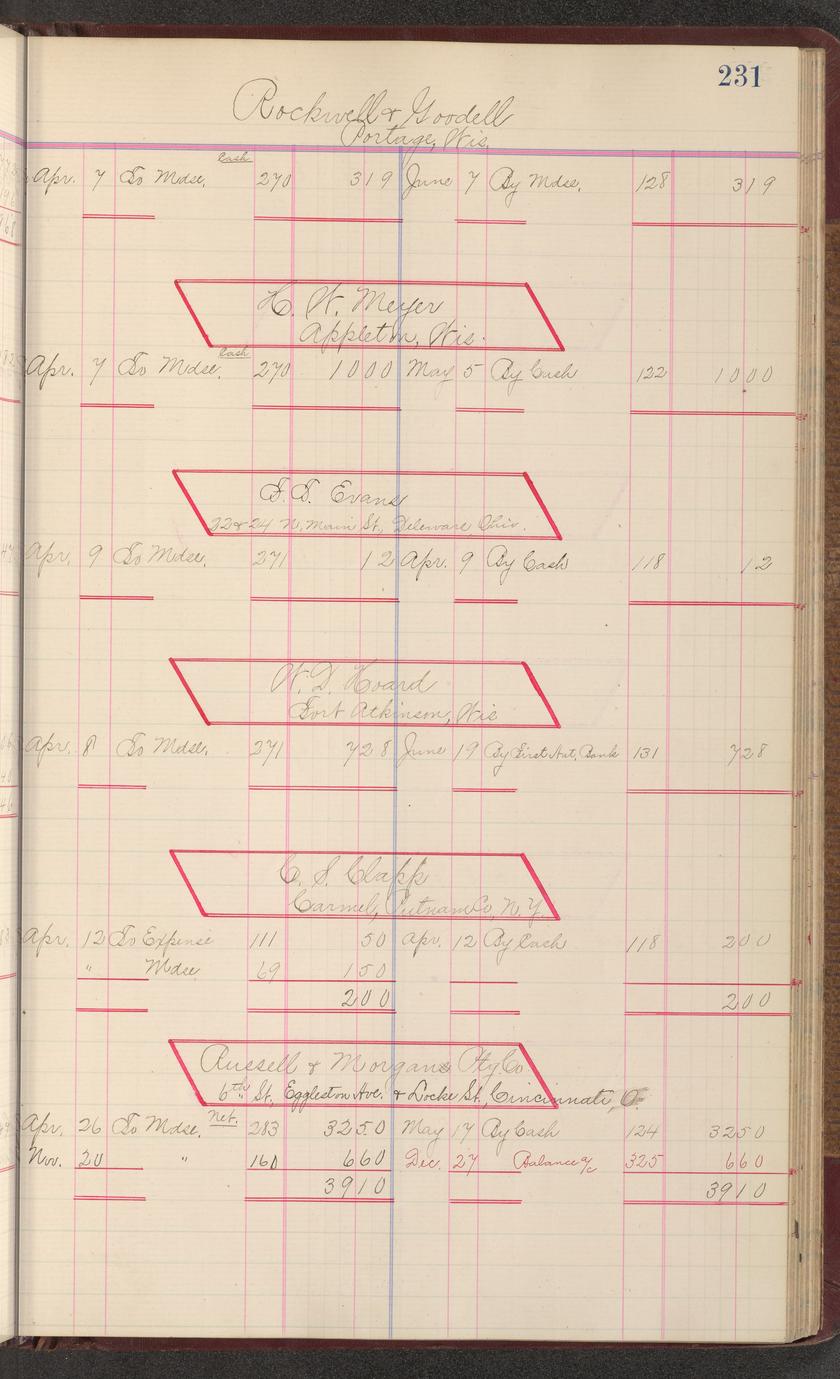 231
Rockwell & Goodell
Portage, Wis.
Cash
Apr. 7 To Mdse. 270 319 June 7 By Mdse. 128 319
H. W. Meyer
Appleton, Wis.
Cash
Apr. 7 To Mdse. 270 1000 May 5 By Cash 122 1000
Evans
22 & 24 N. Main St., Deleware Ohio.
Apr. 9 To Mdse. 271 12 Apr. 9 By Cash 118 12
W. D. Hoard
Fort Atkinson, Wis
Apr. 8 To Mdse. 271 728 June 19 By First Nat. Bank 131 728
C. S. Clapp
Carmel, Putnam Co, N. Y.
Apr. 12 To Expense 111 50 Apr. 12 By Cash 118 200
" Mdse 69 150
200 200
Russell & Morgans Co
6th St, Eggleston Ave. & Locke St., Cincinnati, O.
Net.
Apr. 26 To Mdse. 283 3250 May 17 By Cash 124 3250
Nov. 20 " 160 660 Dec. 27 Balance a/c 325 660
3910 3910